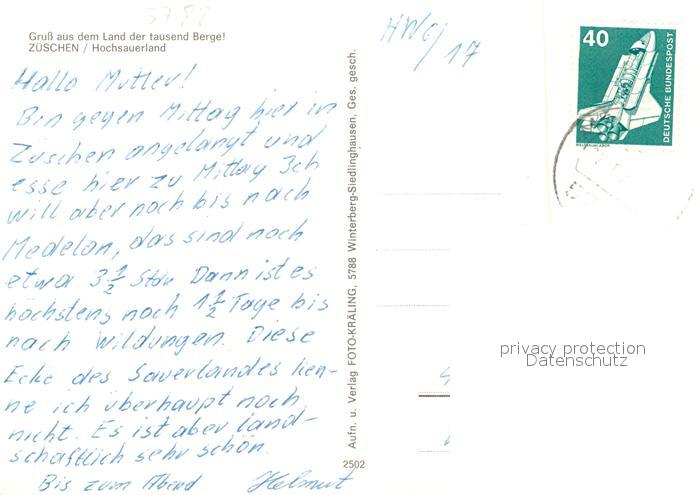 5788
Gruß aus dem Land der tausend Berge!
ZÜSCHEN / Hochsauerland
Hallo Mutter!
Bin gegen Mittag hier in
Züschen angelangt und
esse hier zu Mittag Ich
will aber noch bis nach
Medelon, das sind noch
etwa 3 1/2 Stdn Dann ist es
höchstens noch 1 1/2 Tage bis
nach Wildungen. Diese
Ecke des Sauerlandes ken-
ne ich überhaupt noch
nicht. Es ist aber land-
schaftlich sehr schön.
Bis zum Abend Helmut
Aufn. u. Verlag FOTO-KRÄLING, 5788 Winterberg-Siedlinghausen, Ges. gesch.
2502
17
40
DEUTSCHE BUNDESPOST
WELTRAUMLABOR
privacy protection
Datenschutz